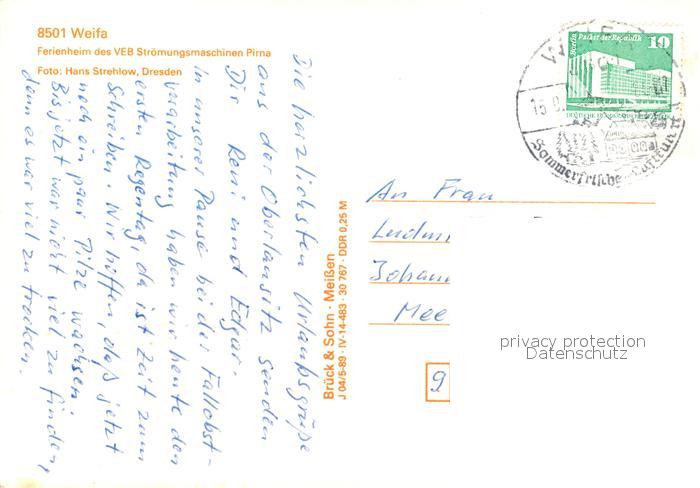 8501 Weifa
Ferienheim des VEB Strömungsmaschinen Pirna
Foto: Hans Strehlow, Dresden
Die herzlichsten Urlaubsgrüße
aus der Oberlausitz senden
Dir Reni und Edgar.
In unserer Pause bei der Fallobst-
verarbeitung haben wir heute den
ersten Regentag, da ist Zeit zum
Schreiben. Wir hoffen, daß jetzt
noch ein paar Pilze wachsen.
Bis jetzt war nicht viel zu finden,
denn es war viel zu trocken.
Brück & Sohn · Meißen
J 04/5-89 · IV-14-483 · 30 767 · DDR 0,25 M
Berlin Palast der Republik
10
Sommerfrische
An Frau
Mee
9
privacy protection
Datenschutz